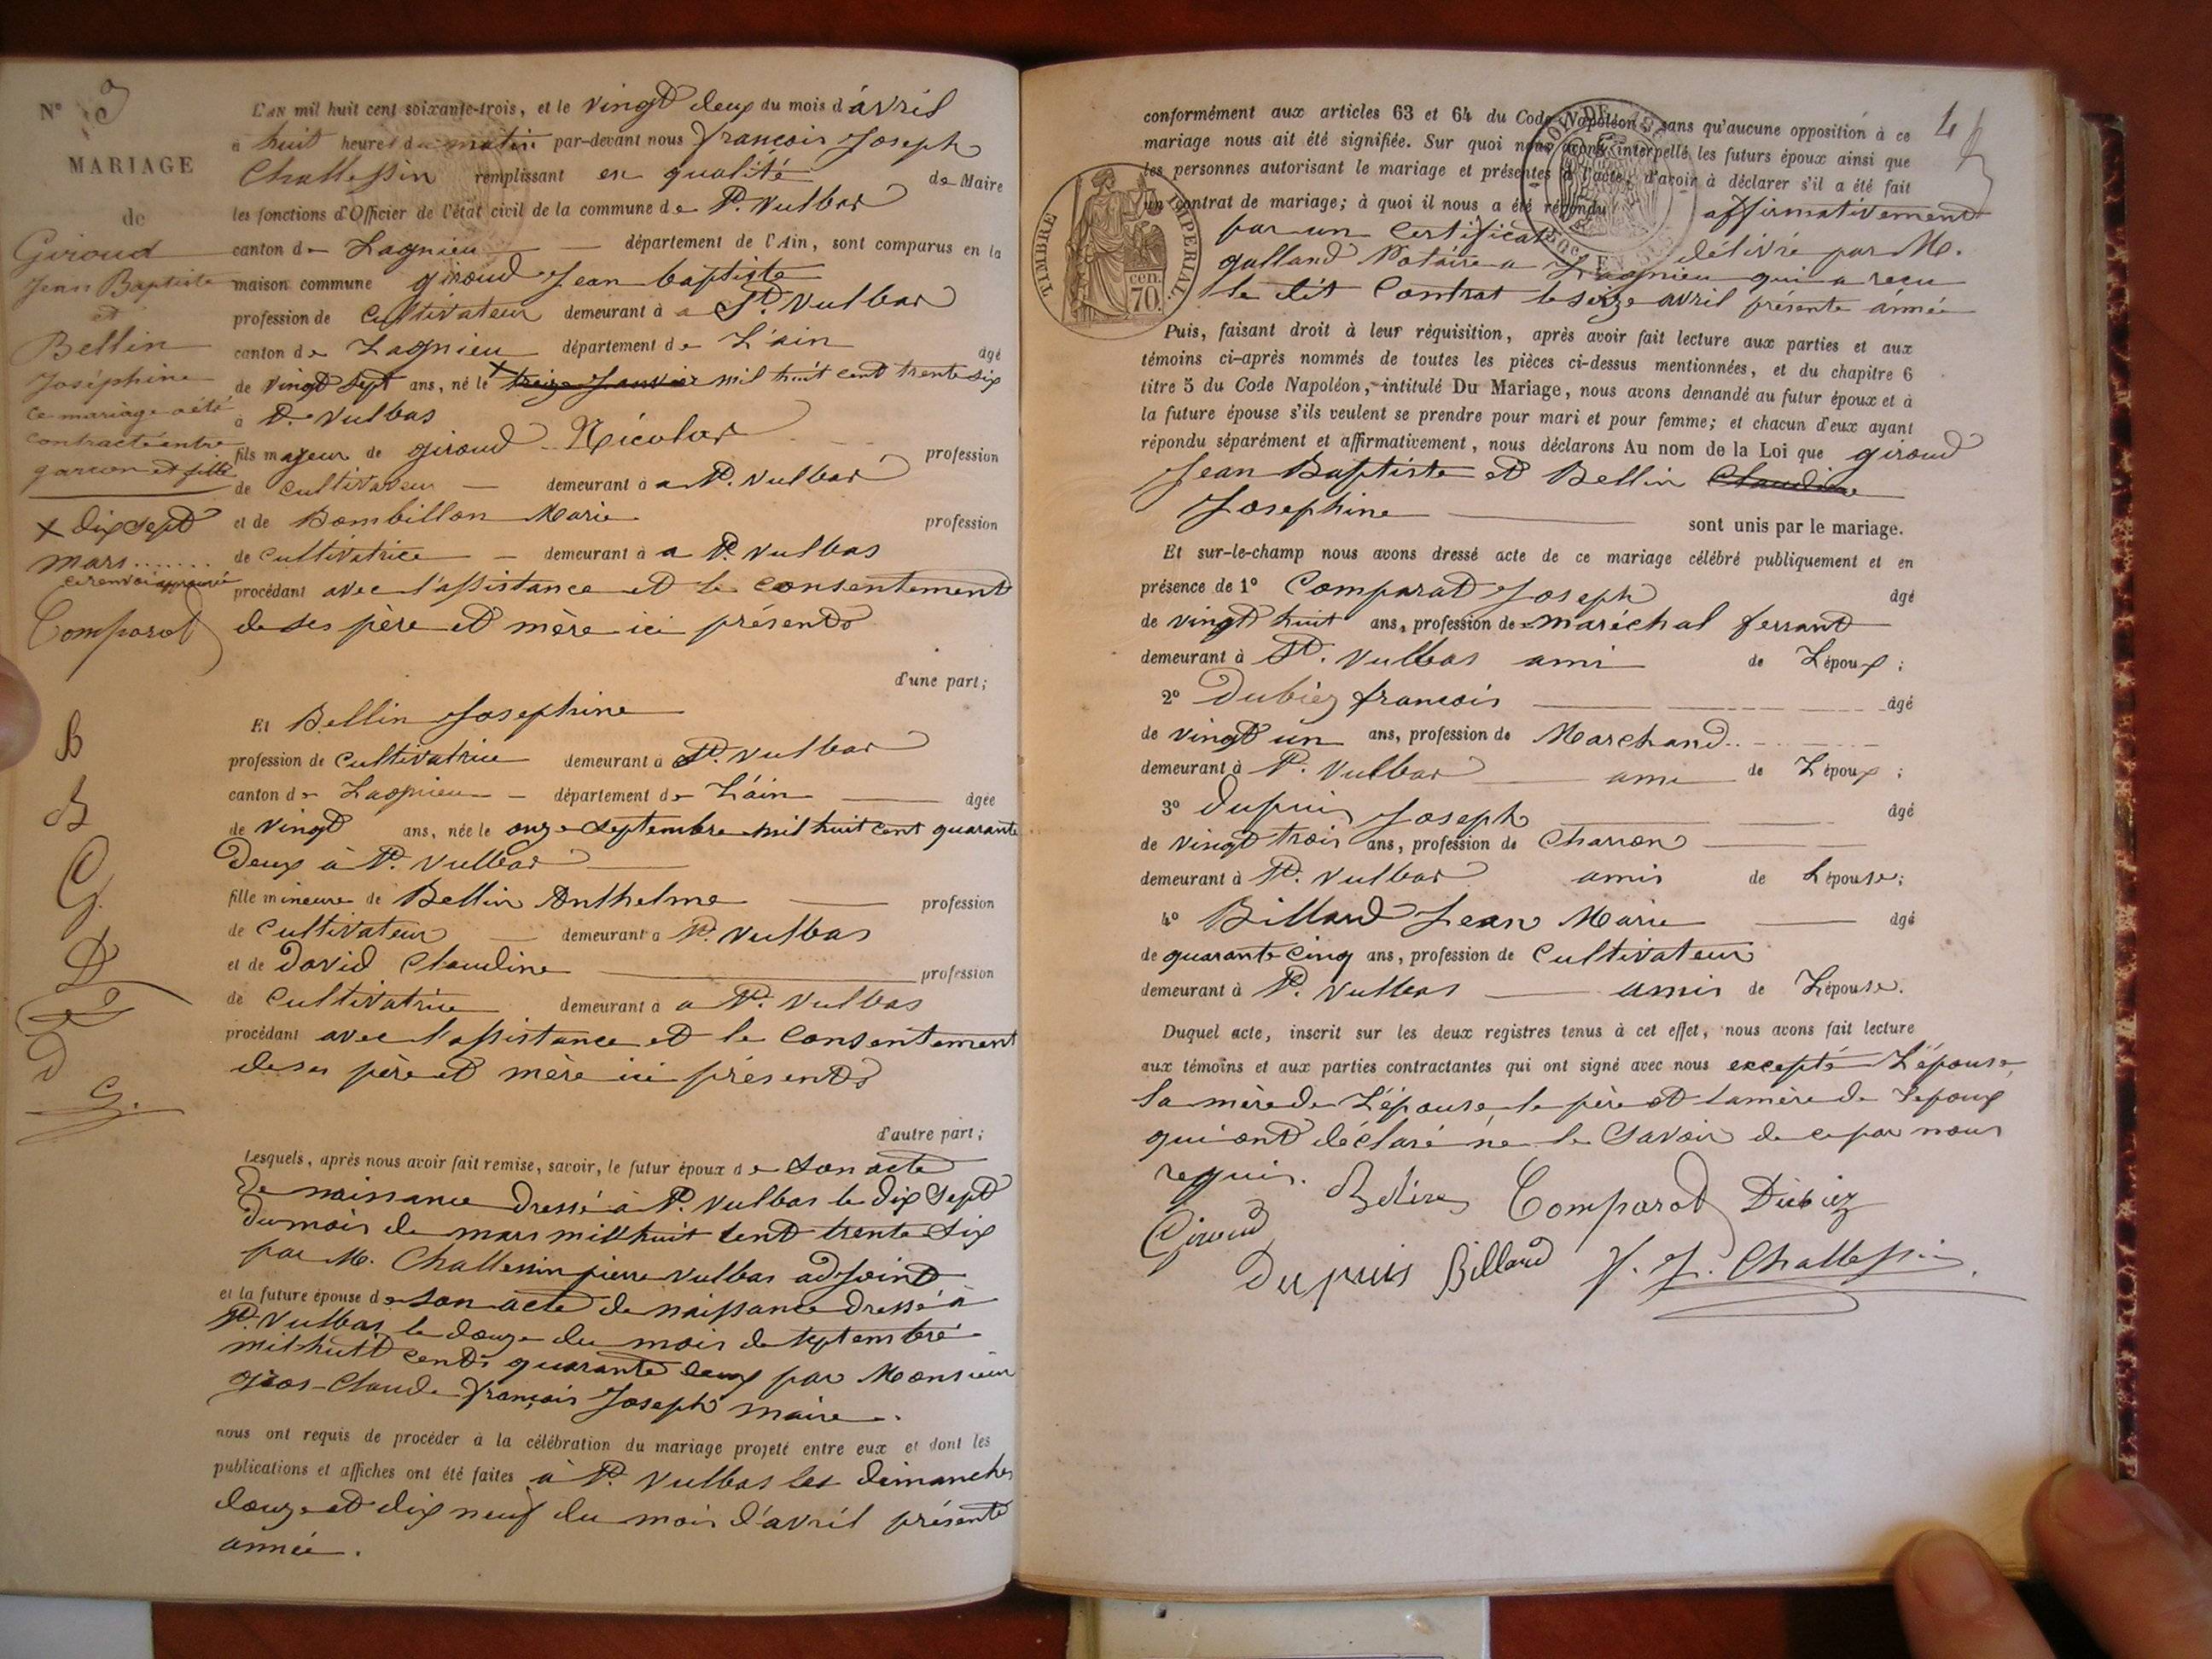 N° 3
MARIAGE
de
Giroud
Jean Baptiste
et
Bellin
Joséphine
ce mariage a été
contracté entre
garcon et fille
x dix sept
mars.......
ce renvoi approuvé
Comparat
B
B
G
D
D
G.
L'AN mil huit cent soixante-trois, et le vingt deux du mois d'avril
a huit heures du matin par-devant nous francois Joseph
Challessin remplissant en qualité de Maire
les fonctions d'Officier de l'état civil de la commune de St. Vulbas
canton de Lagnieu département de l'Ain, sont comparus en la
maison commune giroud Jean baptiste
profession de Cultivateur demeurant à a St. Vulbas
canton de Lagnieu département de L'ain âgé
de vingt sept ans, né le x treize Janvier mil huit cent trente six
à St. Vulbas
fils majeur de giroud Nicolas profession
de cultivateur demeurant à a St. Vulbas
et de Bombillon Marie profession
de cultivatrice demeurant à a St. Vulbas
procédant avec l'assistance et le consentement
de ses père et mère ici présents
d'une part;
Et Bellin Josephine
profession de Cultivatrice demeurant à St. Vulbas
canton de Lagnieu département de L'ain âgée
de vingt ans, née le onze Septembre mil huit cent quarante
Deux à St. Vulbas
fille mineure de Bellin Anthelme profession
de Cultivateur demeurant a St. Vulbas
et de David Claudine profession
de Cultivatrice demeurant à a St. Vulbas
procédant avec l'assistance et le consentement
de ses père et mère ici présents
d'autre part;
Lesquels, après nous avoir fait remise, savoir, le futur époux de son acte
De naissance Dressé à St. Vulbas le dix Sept
Du mois de mars mil huit cent trente Six
par M. Challessin pierre Vulbas adjoint
et la future épouse de son acte de naissance dressé à
St. Vulbas le douze du mois de septembre
mil huit cent quarante deux par Monsieur
gros-Claude françois Joseph maire.
nous ont requis de procéder à la célébration du mariage projeté entre eux et dont les
publications et affiches ont été faites à St. Vulbas les dimanches
douze et dix neuf du mois d'avril présente
année.
4
conformément aux articles 63 et 64 du Code Napoléon, sans qu'aucune opposition à ce
mariage nous ait été signifiée. Sur quoi nous avons interpellé les futurs époux ainsi que
les personnes autorisant le mariage et présentes à l'acte, d'avoir à déclarer s'il a été fait
un contrat de mariage; à quoi il nous a été répondu affirmativement
par un Certificat délivré par M.
galland Notaire a Lagnieu qui a recu
le dit Contrat le seize avril présente année
TIMBRE IMPERIAL.
cen.
70.
Puis, faisant droit à leur réquisition, après avoir fait lecture aux parties et aux
témoins ci-après nommés de toutes les pièces ci-dessus mentionnées, et du chapitre 6
titre 5 du Code Napoléon, intitulé Du Mariage, nous avons demandé au futur époux et à
la future épouse s'ils veulent se prendre pour mari et pour femme; et chacun d'eux ayant
répondu séparément et affirmativement, nous déclarons Au nom de la Loi que giroud
Jean Baptiste et Bellin Claudine
Josephine sont unis par le mariage.
Et sur-le-champ nous avons dressé acte de ce mariage célébré publiquement et en
présence de 1° Comparat Joseph âgé
de vingt huit ans, profession de maréchal ferrant
demeurant à St. Vulbas ami de L'époux;
2° Dubiez francois âgé
de vingt un ans, profession de Marchand
demeurant à St. Vulbas ami de L'époux;
3° dupuis Joseph âgé
de vingt trois ans, profession de Charron
demeurant à St. Vulbas amis de L'épouse;
4° Billard Jean Marie âgé
de quarante Cinq ans, profession de Cultivateur
demeurant à St. Vulbas amis de L'épouse.
Duquel acte, inscrit sur les deux registres tenus à cet effet, nous avons fait lecture
aux témoins et aux parties contractantes qui ont signé avec nous excepté L'épouse,
la mère de L'épouse, le père et la mère de L'époux
qui ont déclaré ne le Savoir de ce par nous
requis. Belin Comparat Dubiez
Giroud
Dupuis Billard F. J. Challessin